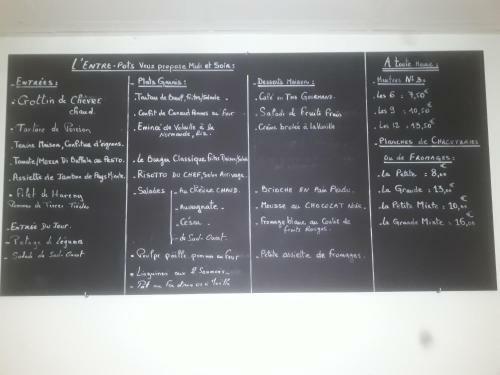 L'Entre-Pots Vous propose Midi et Soir:
Entrées:
Crottin de Chèvre
chaud.
Tartare de Poisson
Terrine Maison, Confiture d'oignons.
Tomate/Mozza Di Buffala au Pesto.
Assiette de Jambon de Pays Mixte.
Filet de Hareng
Pommes de Terres Tièdes
Entrée du Jour.
Potage de Légumes
Salade du Sud-Ouest
Plats Garnis:
Tartare de Boeuf, Frites/Salade.
Confit de Canard Pommes au Four
Emincé de Volaille à la
Normande, Riz.
Le Burger Classique, Frites Maison/Salade
Risotto du Chef, Selon Arrivage.
Salades
Au Chèvre Chaud.
Auvergnate
César
du Sud-Ouest
Poulpe poêlé pommes au Four
Linguines aux 2 Saumons
Desserts Maison:
Café ou Thé Gourmand.
Salade de Fruits Frais
Crème brulée à la Vanille
Brioche en Pain Perdu.
Mousse au Chocolat Noir.
Fromage blanc au Coulis de
fruits Rouges.
Petite assiette de fromages.
A toute Heure:
Huitres N°3:
Les 6 : 7,50€
Les 9 : 10,50€
Les 12 : 13,50€
Planches de Charcuteries
ou de Fromages:
La Petite : 8,00€
La Grande : 13,00€
La Petite Mixte : 10,00€
La Grande Mixte : 16,00€